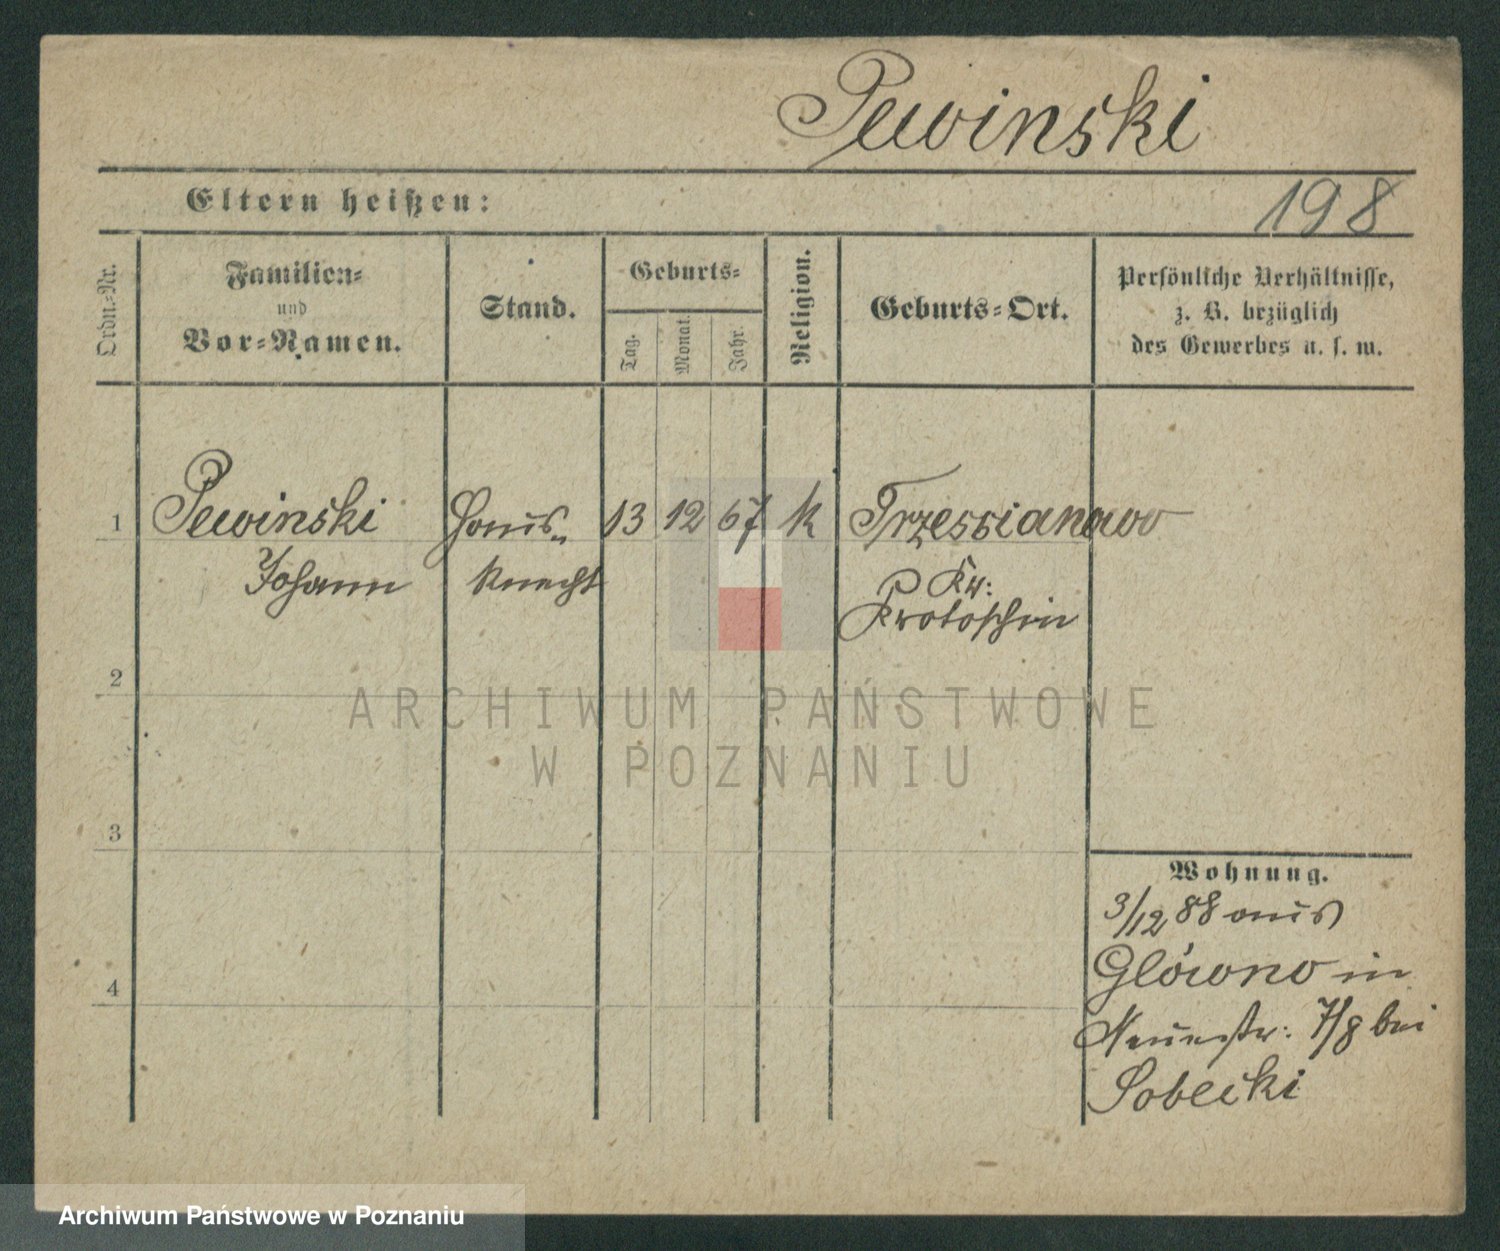 Pewinski
Eltern heißen:
198
Ordn.-Nr.
Familien-
und
Vor-Namen.
Stand.
Geburts-
Tag.
Monat.
Jahr.
Religion.
Geburts-Ort.
Persönliche Verhältnisse,
z. B. bezüglich
des Gewerbes u. s. w.
1
Pewinski
Johann
Haus-
knecht
13
12
67
k
Trzessianowo
Kr:
Krotoschin
2
ARCHIWUM PAŃSTWOWE
W POZNANIU
3
4
Wohnung.
3/12 88 aus
Glówno in
Neuestr: 7/8 bei
Sobecki
Archiwum Państwowe w Poznaniu